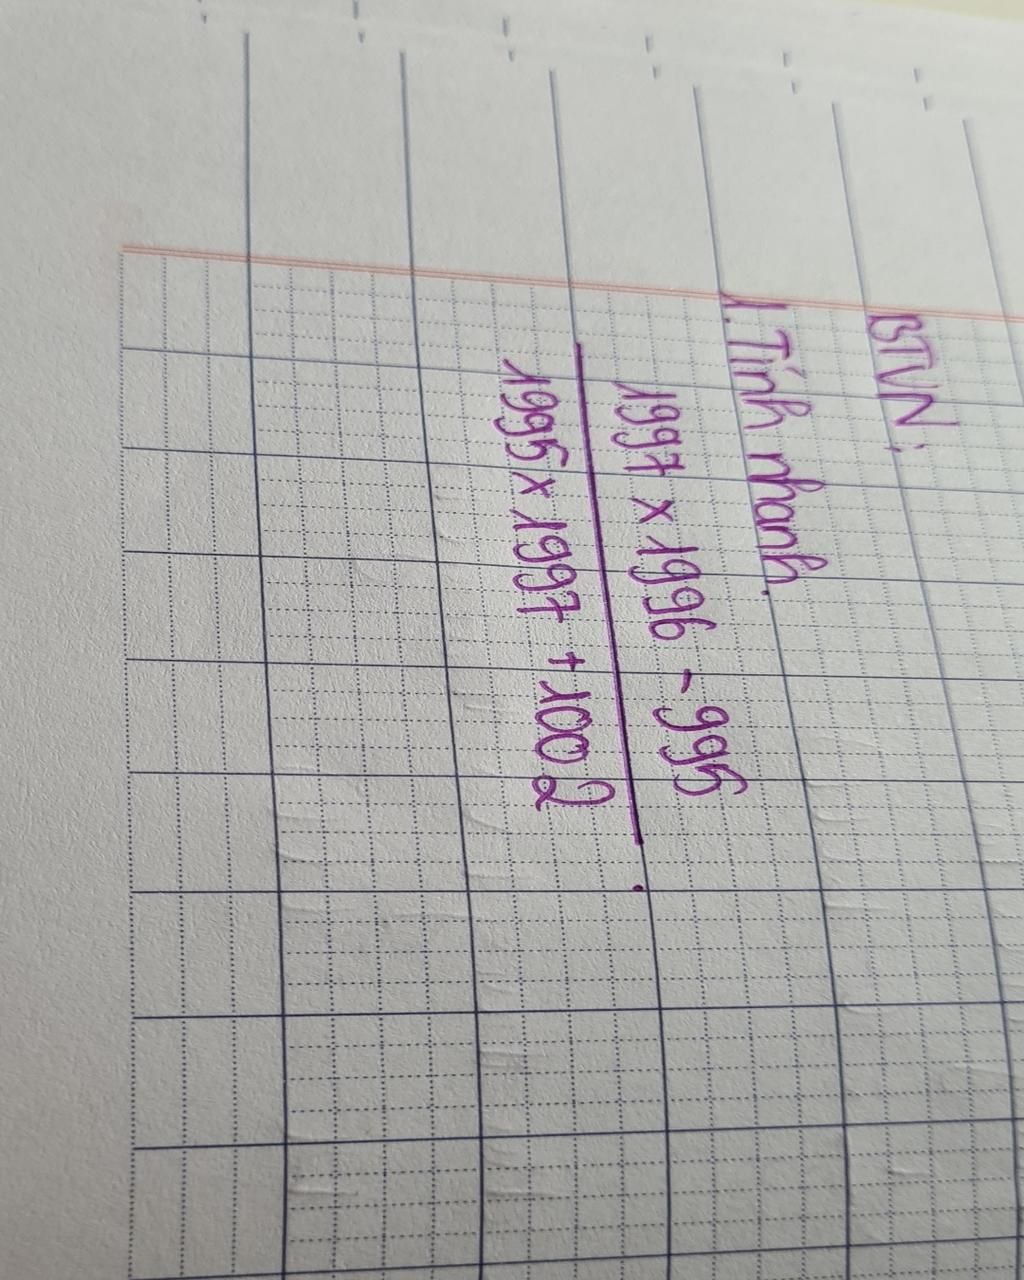 BTVN:
1. Tính nhanh.
1997 x 1996 - 995
1995 x 1997 + 1002
.